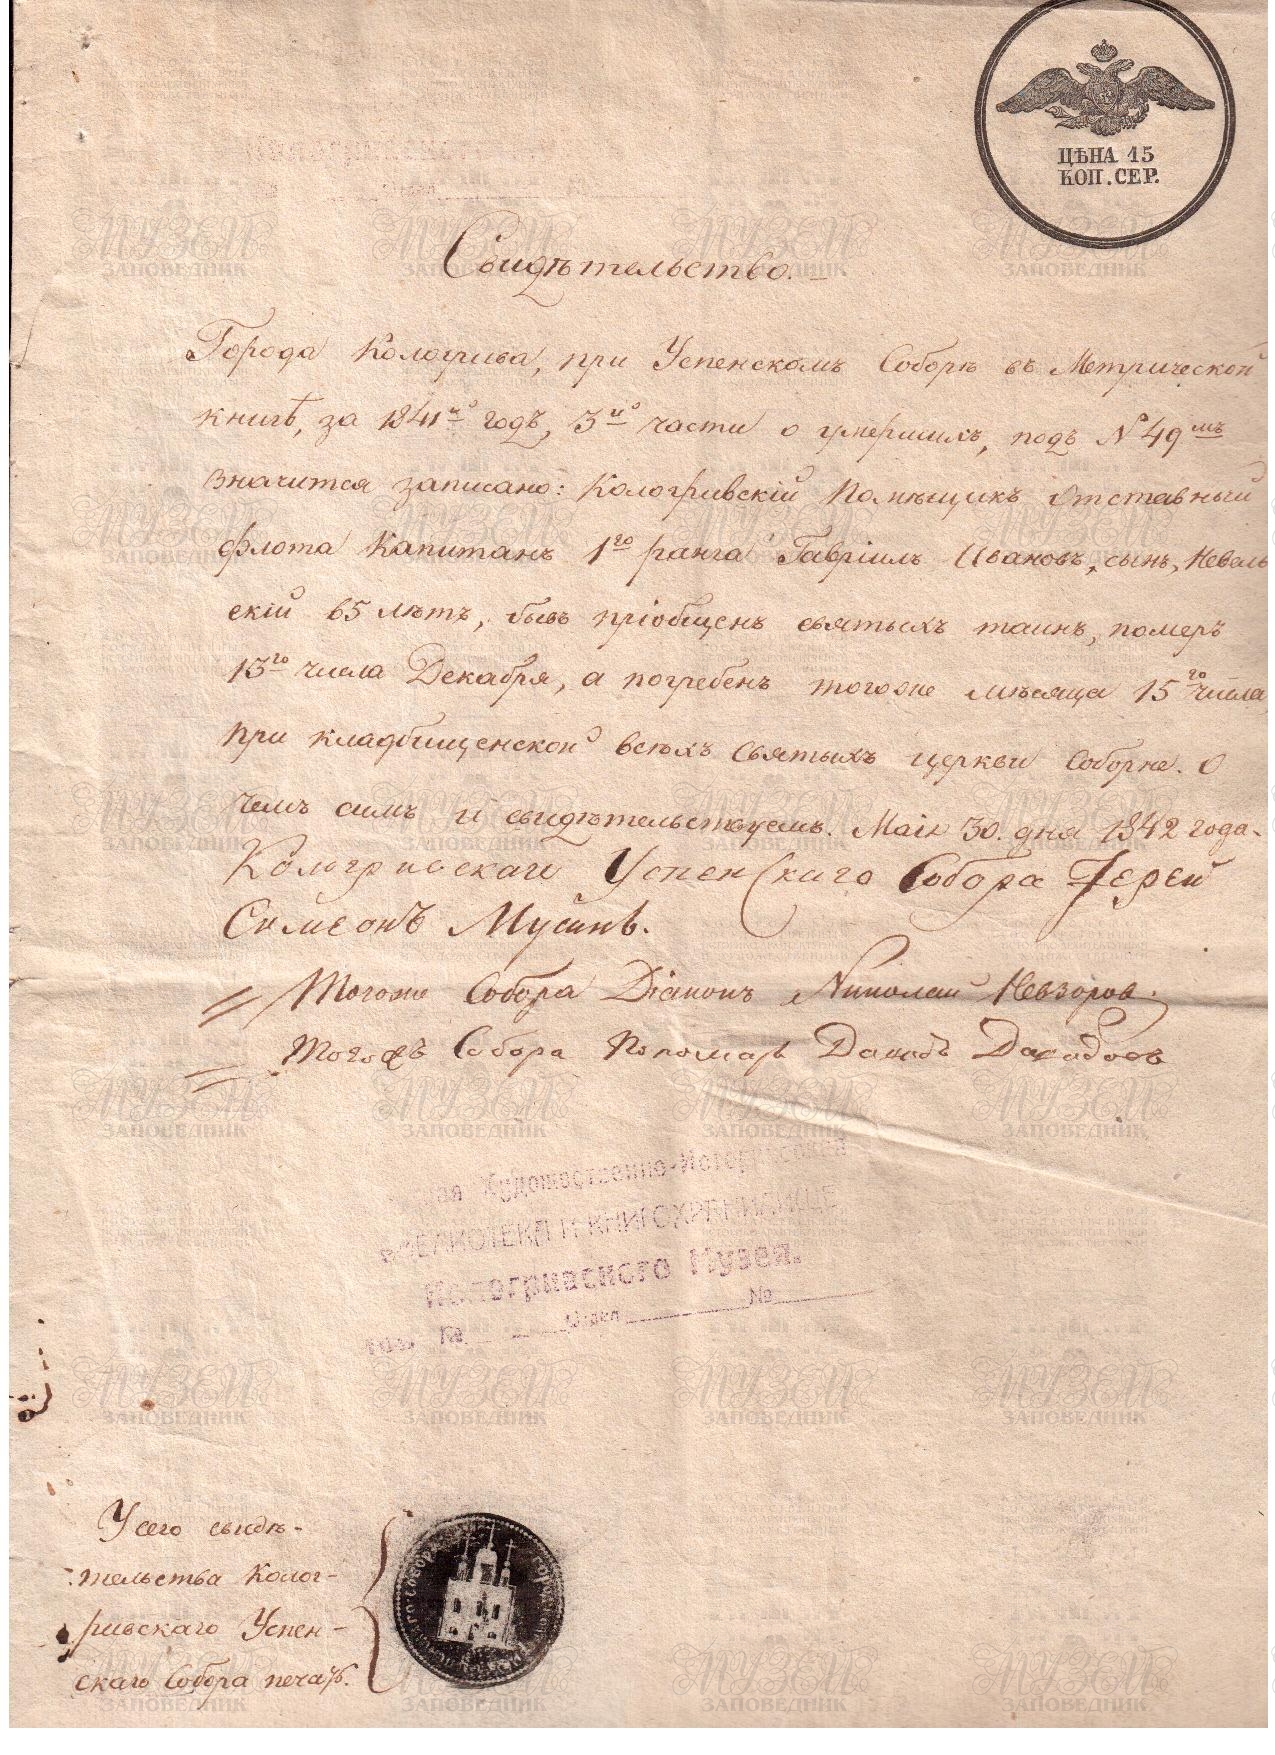 ЦѢНА 15
КОП. СЕР.
Свидѣтельство.
Города Кологрива, при Успенскомъ Соборѣ въ Метрической
книгѣ, за 1841й годъ, 3й части о умершихъ, подъ № 49мъ
значится записано: Кологривскій Помѣщикъ Отставный
флота Капитанъ 1го ранга Гавріилъ Ивановъ, сынъ, Невель
скій 65 лѣтъ, бывъ пріобщенъ святыхъ таинъ, померъ
13го числа Декабря, а погребенъ тогоже мѣсяца 15го числа,
при кладбищенской всѣхъ Святыхъ церкви Соборне. О
чемъ симъ и свидѣтельствуемъ. Маія 30. дня 1842 года.
Кологривскаго Успенскаго Собора Іерей
Симеонъ Мусинъ.
Тогоже Собора Діаконъ Николай Невзоров.
Тогожъ Собора Пономарь
Художественно-Историческая
БИБЛИОТЕКА И КНИГОХРАНИЛИЩЕ
Кологривского Музея.
№ Отдел №
У сего свидѣ-
тельства Колог-
ривскаго Успен-
скаго Собора печать.
МУЗЕЙ
ЗАПОВЕДНИК